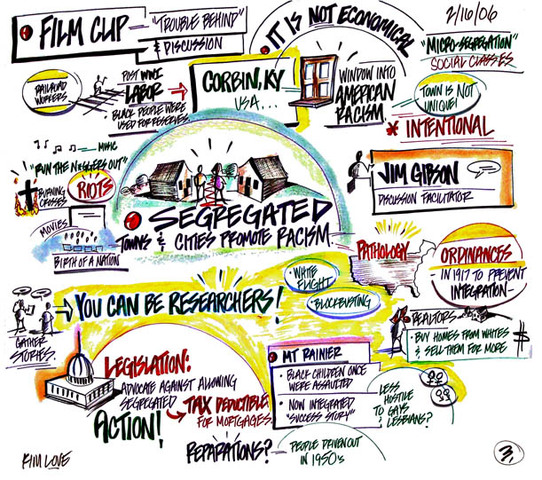 FILM CLIP
"TROUBLE BEHIND"
& DISCUSSION
IT IS NOT ECONOMICAL
2/16/06
"MICRO-SEGREGATION"
SOCIAL CLASSES
RAILROAD
WORKERS
POST WWI
LABOR
BLACK PEOPLE WERE
USED FOR RESERVES
CORBIN, KY
USA...
WINDOW INTO
AMERICAN
RACISM.
TOWN IS NOT
UNIQUE!
* INTENTIONAL
MUSIC
"RUN THE N*GGERS OUT"
BURNING
CROSSES
RIOTS
MOVIES
BIRTH OF A NATION
SEGREGATED
TOWNS & CITIES PROMOTE RACISM
JIM GIBSON
DISCUSSION FACILITATOR
PATHOLOGY
ORDINANCES
IN 1917 TO PREVENT
INTEGRATION
• WHITE
FLIGHT
• BLOCKBUSTING
GATHER
STORIES.
YOU CAN BE RESEARCHERS!
REALTORS
• BUY HOMES FROM WHITES
& SELL THEM FOR MORE
$
LEGISLATION:
ADVOCATE AGAINST ALLOWING
SEGREGATED
TAX DEDUCTIBLE
FOR MORTGAGES.
ACTION!
MT RAINIER
• BLACK CHILDREN ONCE
WERE ASSAULTED
• NOW INTEGRATED
"SUCCESS STORY"
LESS
HOSTILE
TO GAYS
& LESBIANS?
REPARATIONS?
PEOPLE DRIVEN OUT
IN 1950's
KIM LOVE
3,